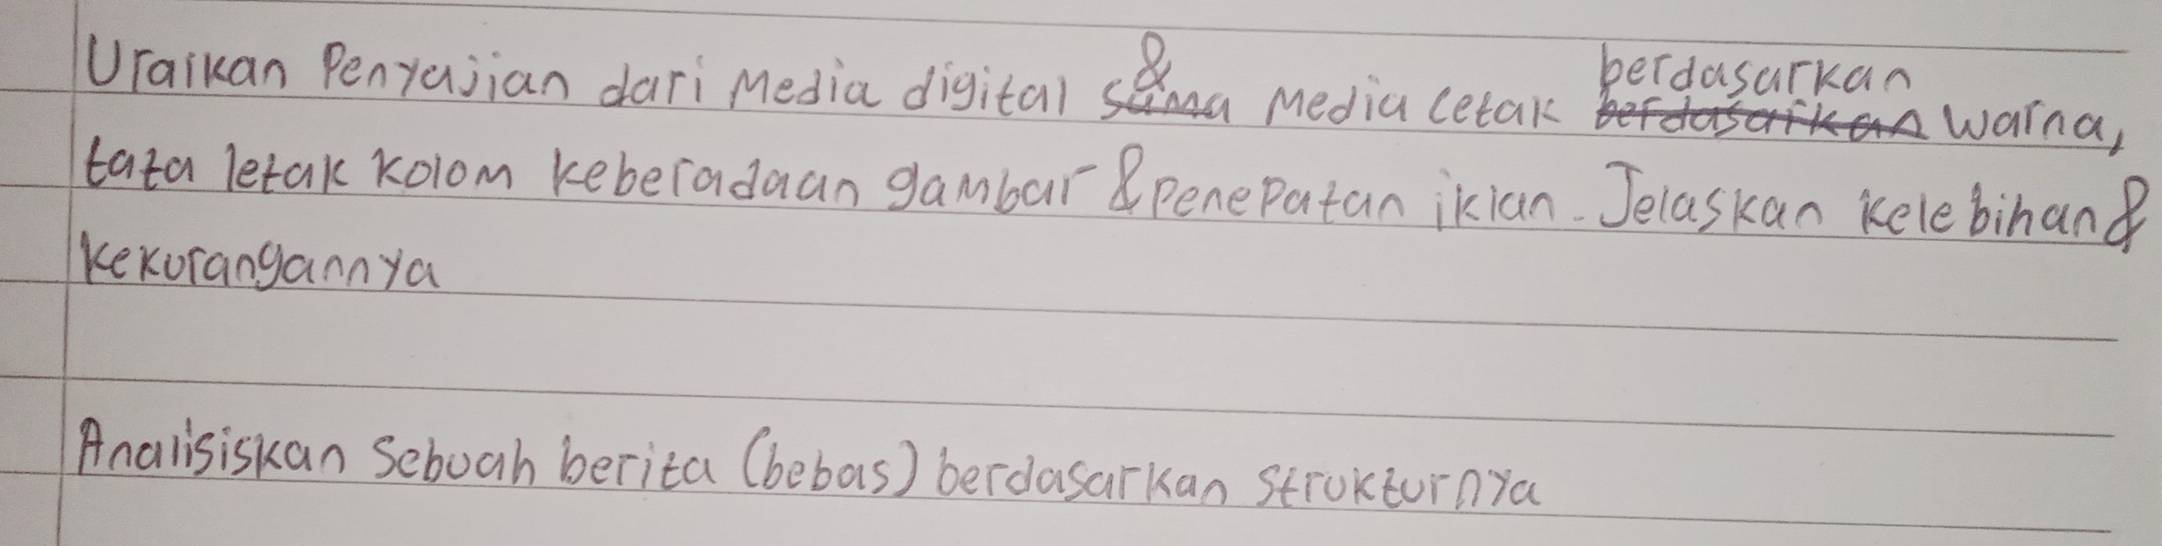 Uraikan Penyajian dari Media digital & Media cetak berdasarkan warna,
tata letak kolom keberadaan gambar & penepatan iklan. Jelaskan kelebihan &
kekurangannya
Analisiskan Sebuah berita (bebas) berdasarkan strukturnya